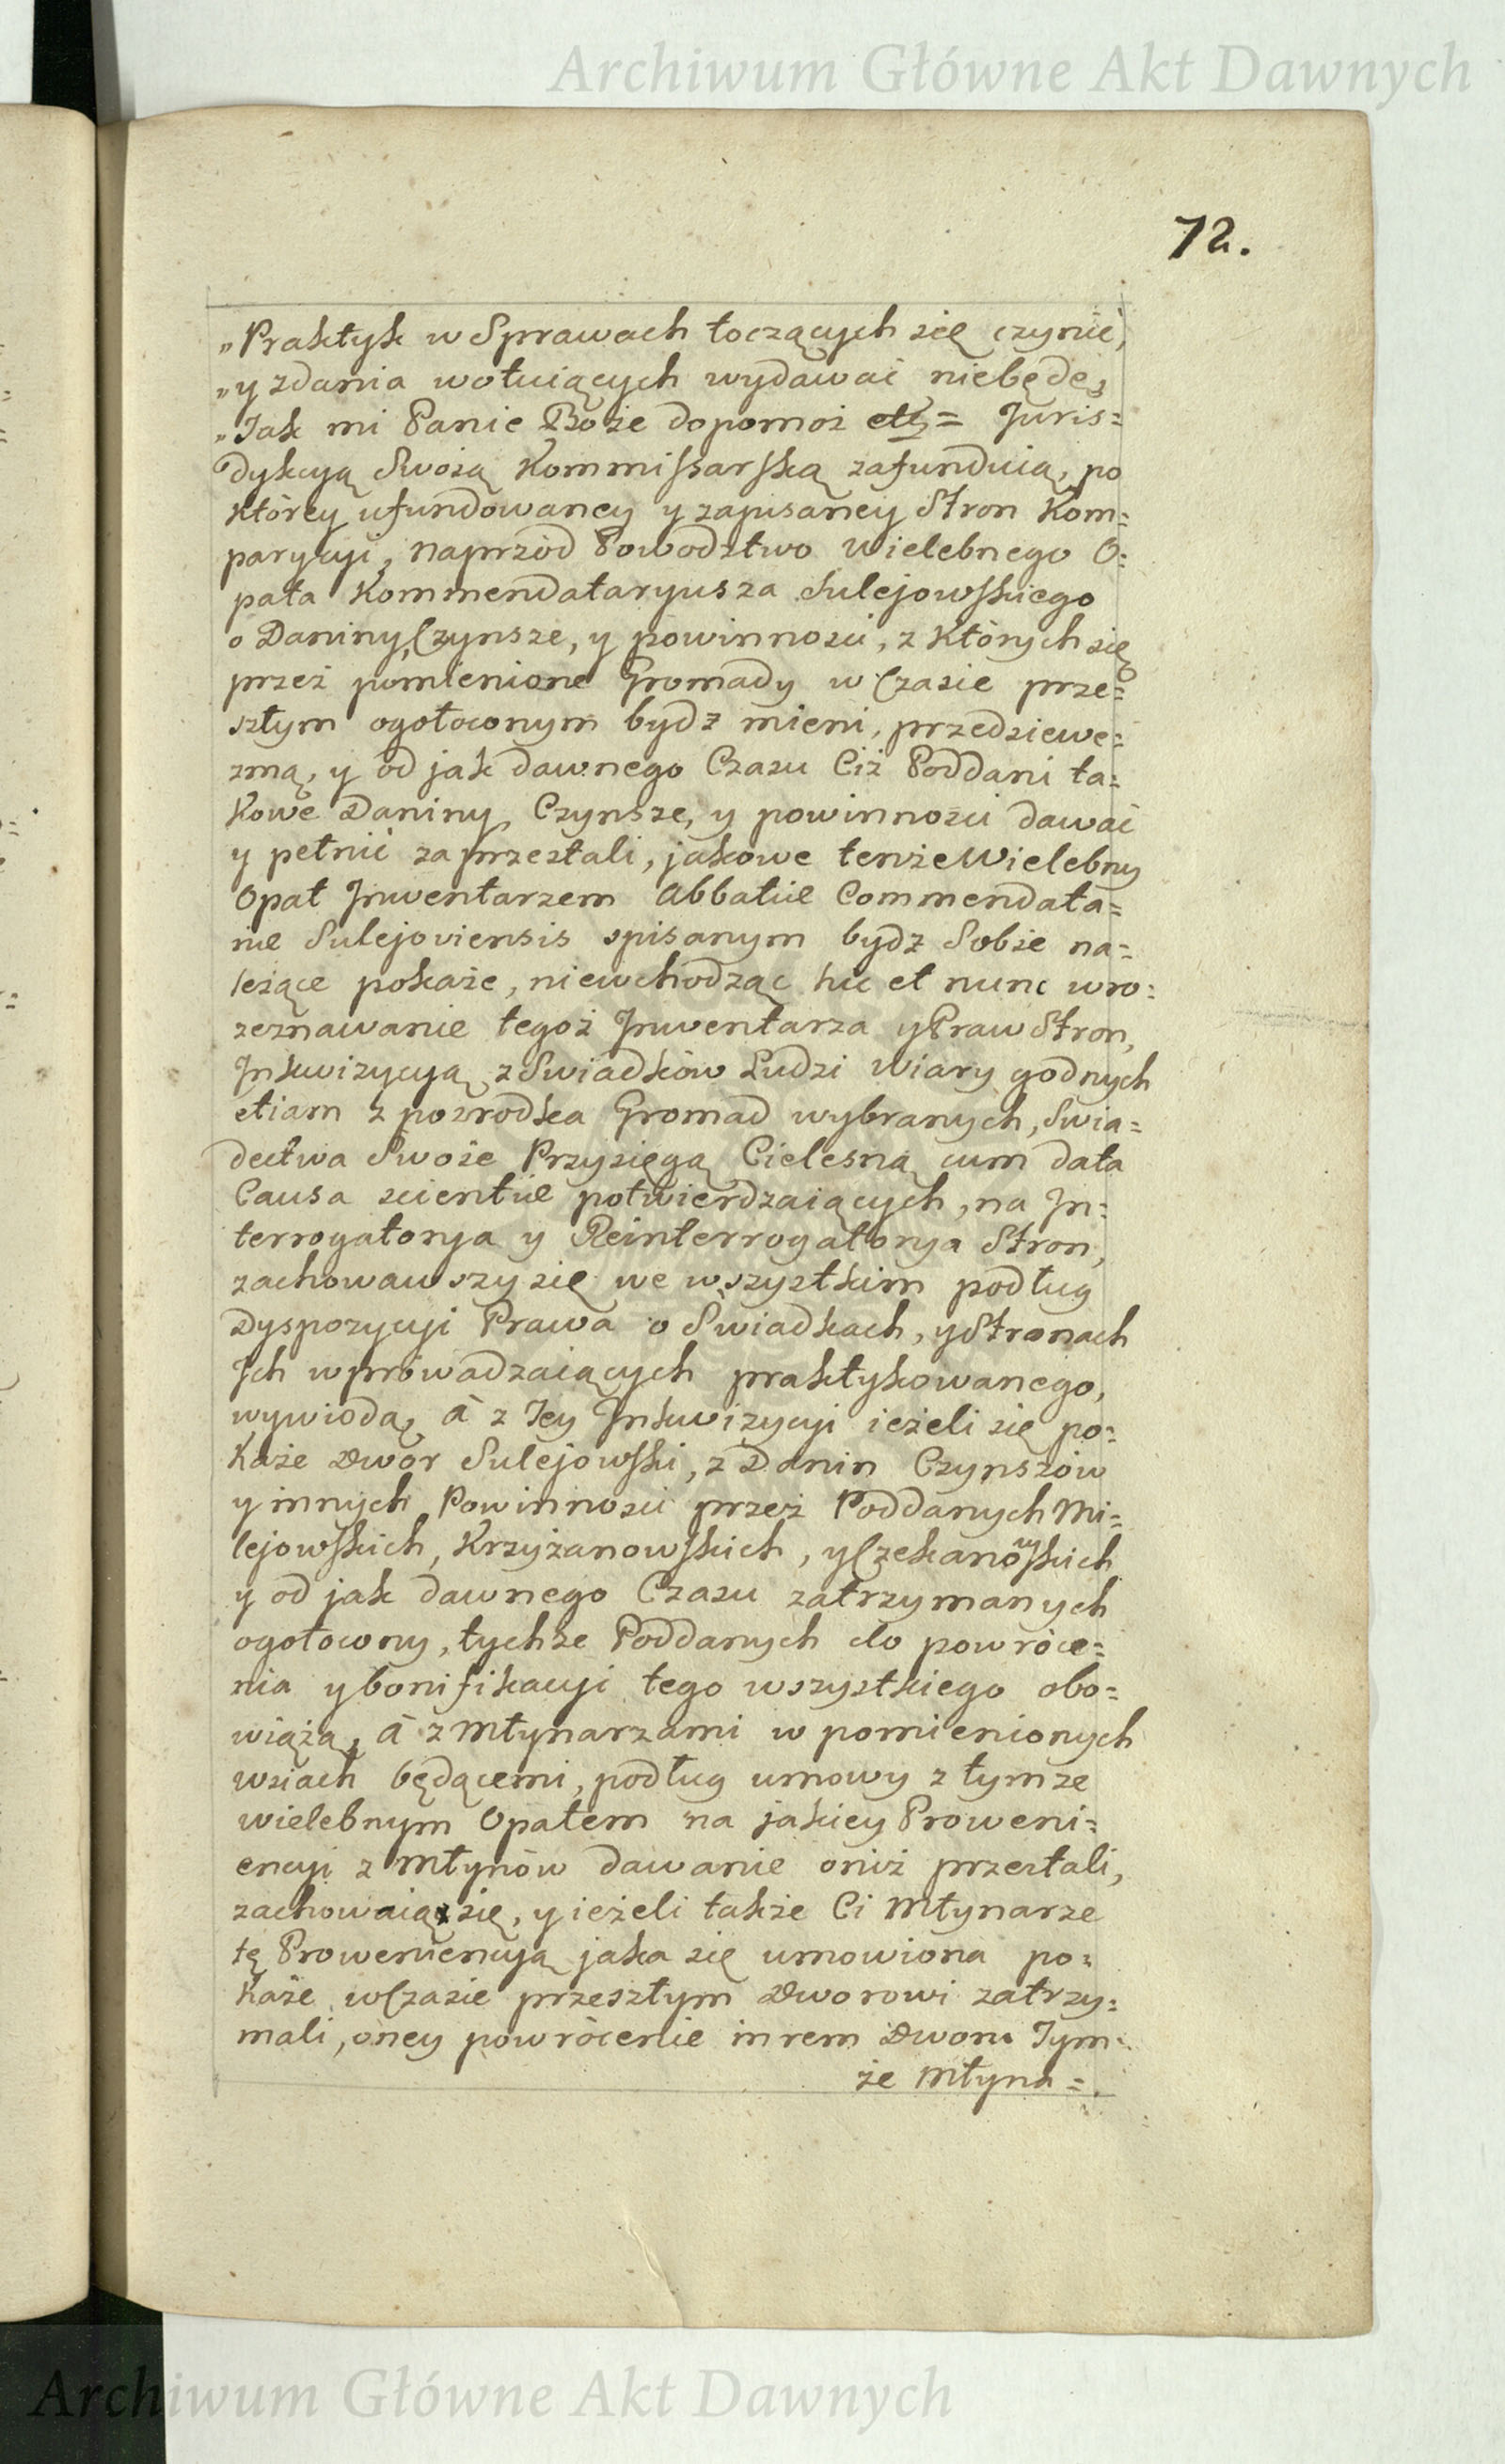 Archiwum Główne Akt Dawnych
72.
„Praktyk w Sprawach toczących się czynić,
„y zdania wotuiących wydawać niebędę,
„Jak mi Panie Boże dopomoż etc= Juris=
dykcyą Swoią Kommissarską zafunduią, po
ktorey ufundowaney y zapisaney Stron Kom=
parycyi, naprzod Powodztwo Wielebnego O=
pata Kommendataryusza Sulejowskiego
o Daniny, Czynsze, y powinnosci, z których się
przez pomienione Gromady w Czasie prze=
szłym ogołoconym bydz mieni, przedsiewe=
zmą, y od jak dawnego Czasu Ciż Poddani ta=
kowe Daniny, Czynsze, y powinności dawać
y pełnić zaprzestali, jakowe tenże Wielebny
Opat Jnwentarzem Abbatiæ Commendata=
riæ Sulejoviensis spisanym bydz Sobie na=
leżące pokaże, niewchodząc hic et nunc wro=
zeznawanie tegoż Jnwentarza y Praw Stron,
Jnkwizycyą z Swiadków Ludzi Wiary godnych
etiam z pośrodka Gromad wybranych, Swia=
dectwa Swoie Przysięgą Cielesną cum data
Causa scientiæ potwierdzaiących, na Jn=
terrogatorya y Reinterrogatorya Stron,
zachowawszy się we wszystkim podług
Dyspozycyi Prawa o Swiadkach, y Stronach
Jch wprowadzaiących praktykowanego,
wywiodą, à z Jey Jnkwizycyi ieżeli się po=
każe Dwor Sulejowski, z Danin Czynszów
y innych Powinnosci przez Poddanych Mi=
lejowskich, Krzyżanowskich, y Czekanowskich
y od jak dawnego Czasu zatrzymanych
ogołocony, tychże Poddanych do powróce=
nia y bonifikacyi tego wszystkiego obo=
wiążą, à z Młynarzami w pomienionych
wsiach będącemi, podług umowy z tymże
wielebnym Opatem na jakiey Proweni=
encyi z Młynów dawanie oniż przestali,
zachowaią się, y ieżeli także Ci Młynarze
tę Prowenięncyą jaka się umowiona po=
każe w Czasie przeszłym Dworowi zatrzy=
mali, oney powrócenie in rem Dworu Tym=
że Młyna=
Archiwum Główne Akt Dawnych